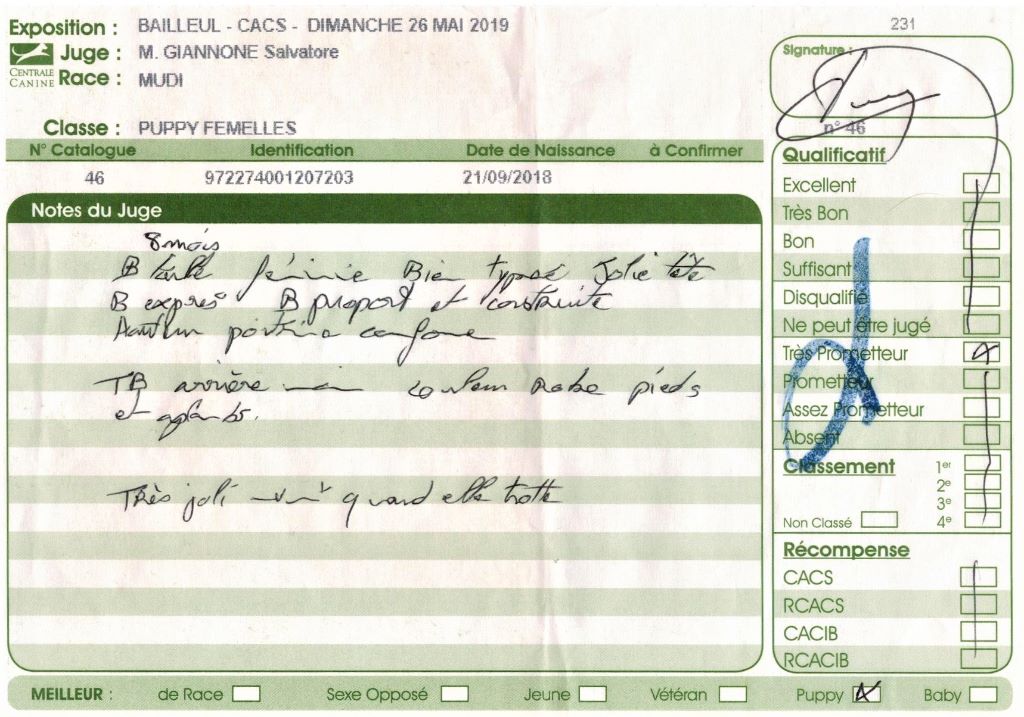 231
Exposition : BAILLEUL - CACS - DIMANCHE 26 MAI 2019
Juge : M. GIANNONE Salvatore
CENTRALE CANINE
Race : MUDI
Classe : PUPPY FEMELLES
Signature :
n° 46
N° Catalogue Identification Date de Naissance à Confirmer
46 972274001207203 21/09/2018
Notes du Juge
8 mois
B taille féminie Bien typosé Jolie tête
B expres B proport et construite
poitrine conforme
TB arrière couleur robe pieds
et aplombs.
Très joli quand elle trotte
Qualificatif
Excellent
Très Bon
Bon
Suffisant
Disqualifié
Ne peut être jugé
Très Prometteur
Prometteur
Assez Prometteur
Absent
Classement 1er
2e
3e
Non Classé 4e
Récompense
CACS
RCACS
CACIB
RCACIB
MEILLEUR : de Race Sexe Opposé Jeune Vétéran Puppy Baby